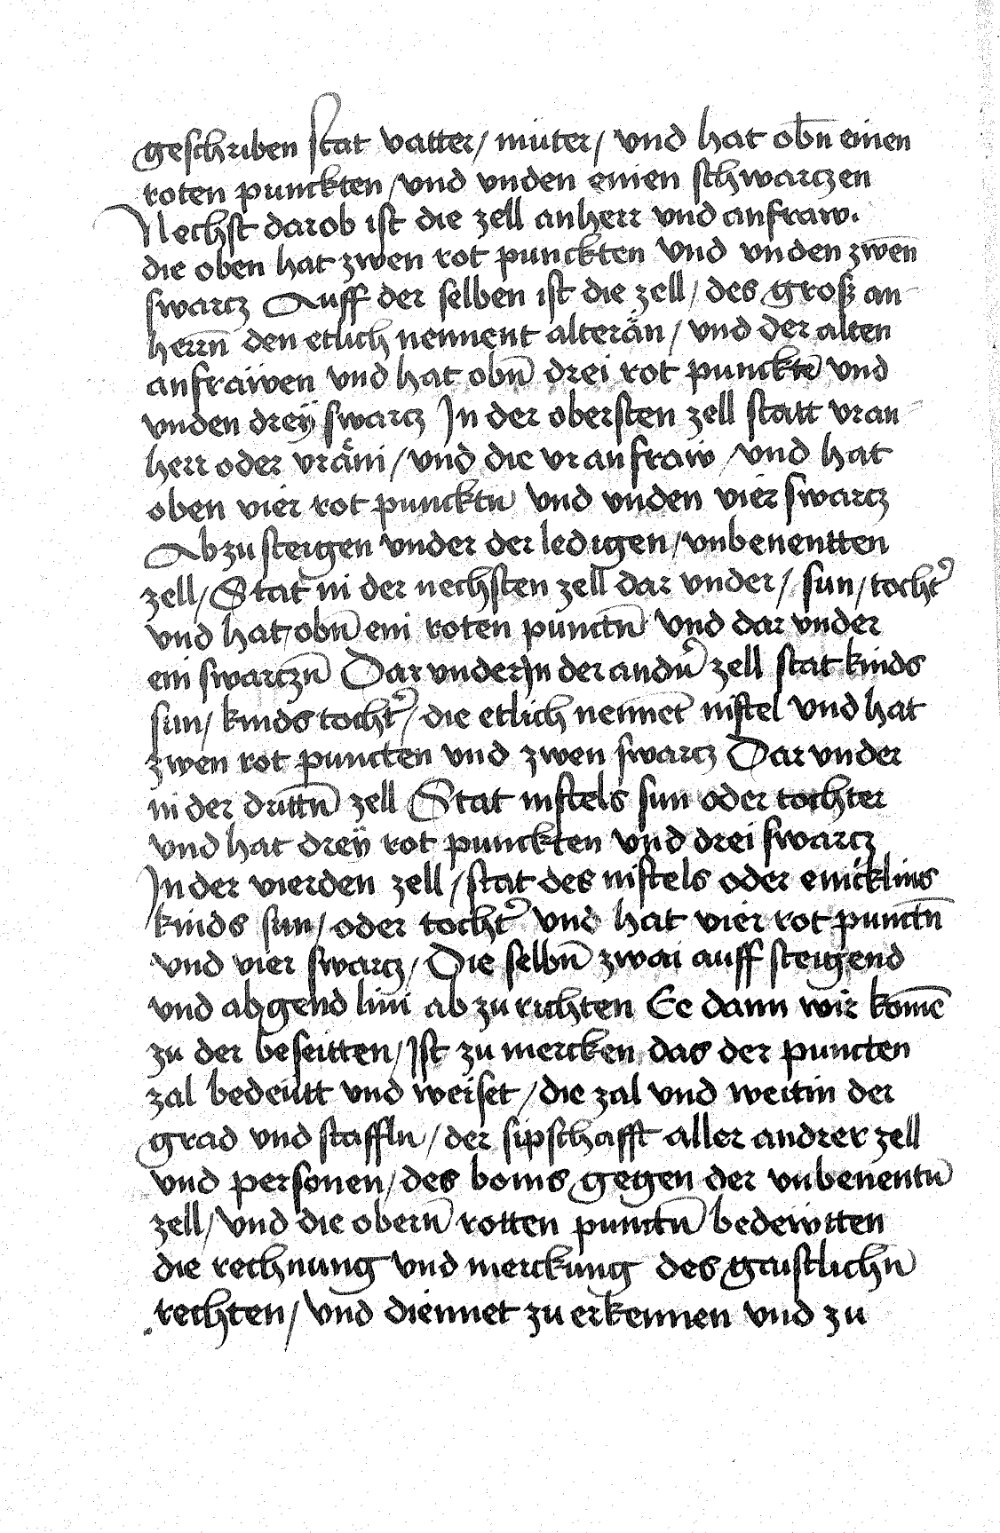 geschriben stat vatter / müter / vnd hat obn̄ einen
roten punckten / vnd vnden einen schwarczen
Nechst darob ist die zell anherr vnd anfraw.
die oben hat zwen rot punckten vnd vnden zwen̄
swarcz Auff der selben ist die zell / des groß an-
herrn̄ den etlich nennent alterän / vnd der alten
anfrawen vnd hat obn̄ drei rot puncktē vnd
vnden dreÿ swarcz In der obersten zell statt vran-
herr oder vräni / vnd die vranfraw / vnd hat
oben vier rot puncktn̄ vnd vnden vier swarcz
Ab zu steigen vnder der ledigen / vnbenentten
zell / Stat in der nechsten zell dar vnder / sun / tocht̾
vnd hat obn̄ ein roten punctn̄ vnd dar vnder
ein swarczn̄ Dar vnder In der andn̾ zell stat kinds
sun / kinds tocht̾ / die etlich nennet̄ nistel vnd hat
zwen rot puncten vnd zwen swarcz Dar vnder
in der drittn̄ zell Stat nistels sun oder tochter
vnd hat dreÿ rot punckten vnd drei swarcz
In der vierden zell / stat des nistels oder enicklins
kinds sun / oder tocht̾ vnd hat vier rot punctn̄
vnd vier swarcz / Die selbn̄ zwai auff steigend
vnd abgend lini ab zu richten Ee dann wir komē
zu der beseitten / Ist zu mercken das der puncten
zal bedeütt vnd weiset / die zal vnd weitin der
grad vnd staffln / der sipschafft aller andrer zell
vnd personen / des boms gegen der vnbenentn̄
zell / vnd die obern̄ rotten punctn̄ bedewtten
die rechnung vnd merckung des geistlichn̄
rechten / vnd diennet zu erkennen vnd zu